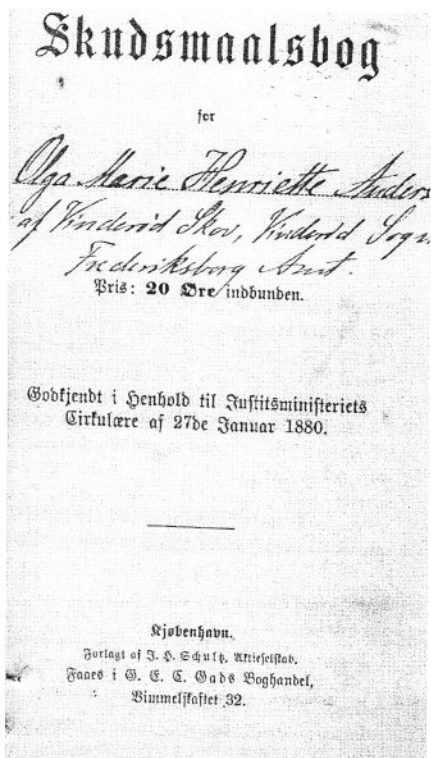 Skudsmaalsbog
for
Olga Marie Henriette Anders
af Vinderød Skov, Vinderød Sogn
Frederiksborg Amt.
Pris: 20 Øre indbunden.
Godkjendt i Henhold til Justitsministeriets
Cirkulære af 27de Januar 1880.
Kjøbenhavn.
Forlagt af J. H. Schultz, Aktieselskab.
Faaes i G. E. C. Gads Boghandel,
Vimmelskaftet 32.